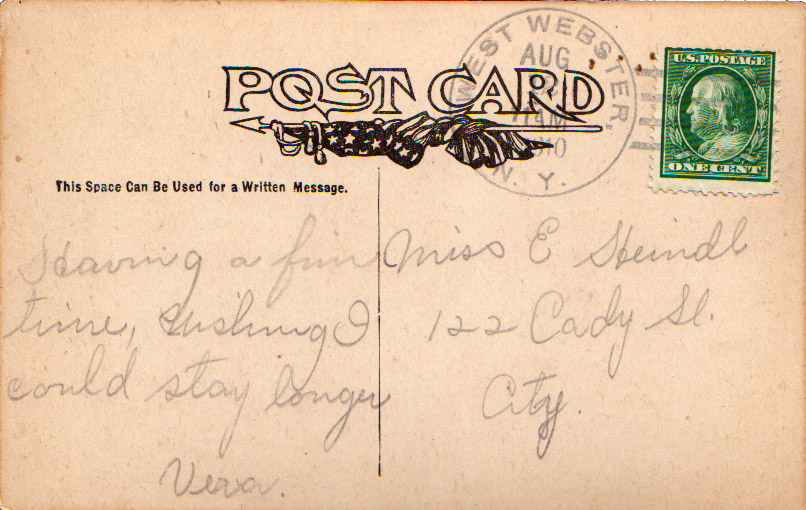 POST CARD
WEST WEBSTER,
AUG
11 AM
1910
N. Y.
U.S. POSTAGE
ONE CENT
This Space Can Be Used for a Written Message.
Having a fine
time, wishing I
could stay longer
Vera.
Miss E Steindl
122 Cady St.
City.